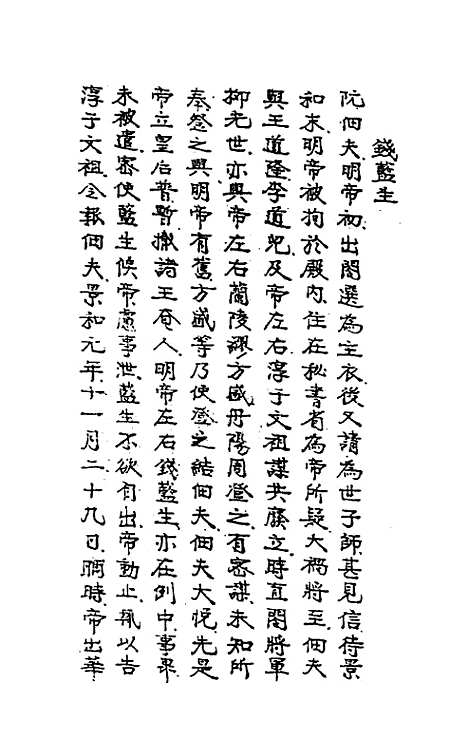 錢藍生
阮佃夫明帝初出閣選為主衣後又請為世子師甚見信待景
和末明帝被拘於殿內住在秘書省為帝所疑大禍將至佃夫
與王道隆李道兒及帝左右淳于文祖謀共廢立時直閣將軍
柳光世亦與帝左右蘭陵繆方盛丹陽周登之有密謀未知所
奉登之與明帝有舊方盛等乃使登之結佃夫佃夫大悅先是
帝立皇后普暫撤諸王奄人明帝左右錢藍生亦在例中事畢
未被遣密使藍生候帝慮事泄藍生不欲自出帝動止輒以告
淳于文祖令報佃夫景和元年十一月二十九日晡時帝出華